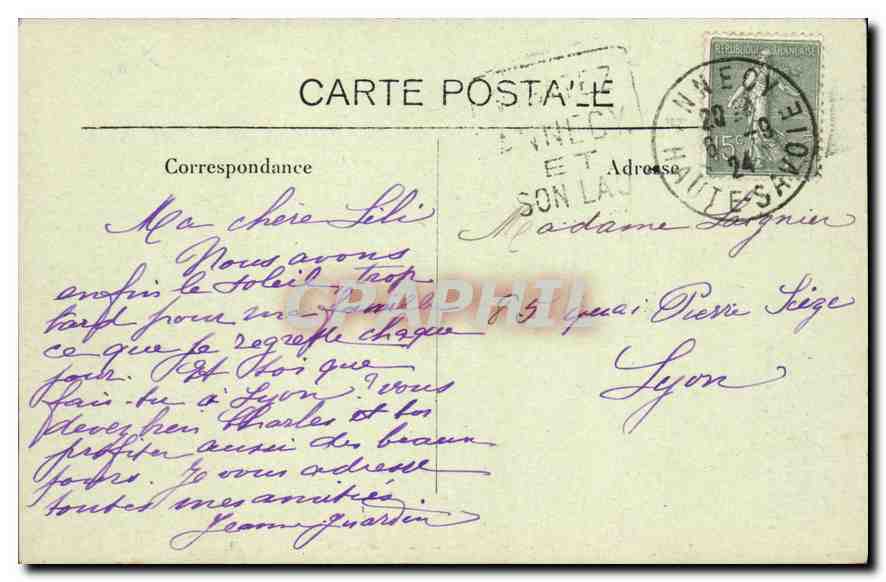 CARTE POSTALE
Correspondance
Adresse
REPUBLIQUE FRANCAISE
15c
ANNECY
20
8 -9
24
HAUTE-SAVOIE
ANNECY
ET
SON LAC
Ma chère Lili
Nous avons
enfin le soleil, trop
tard pour ma famille
ce que je regrette chaque
jour. Et toi que
fais-tu à Lyon? vous
devez bien Charles et toi
profiter aussi des beaux
jours. Je vous adresse
toutes mes amitiés
Jeanne Guardin
Madame
85 quai Pierre Scize
Lyon
CPAPHIL